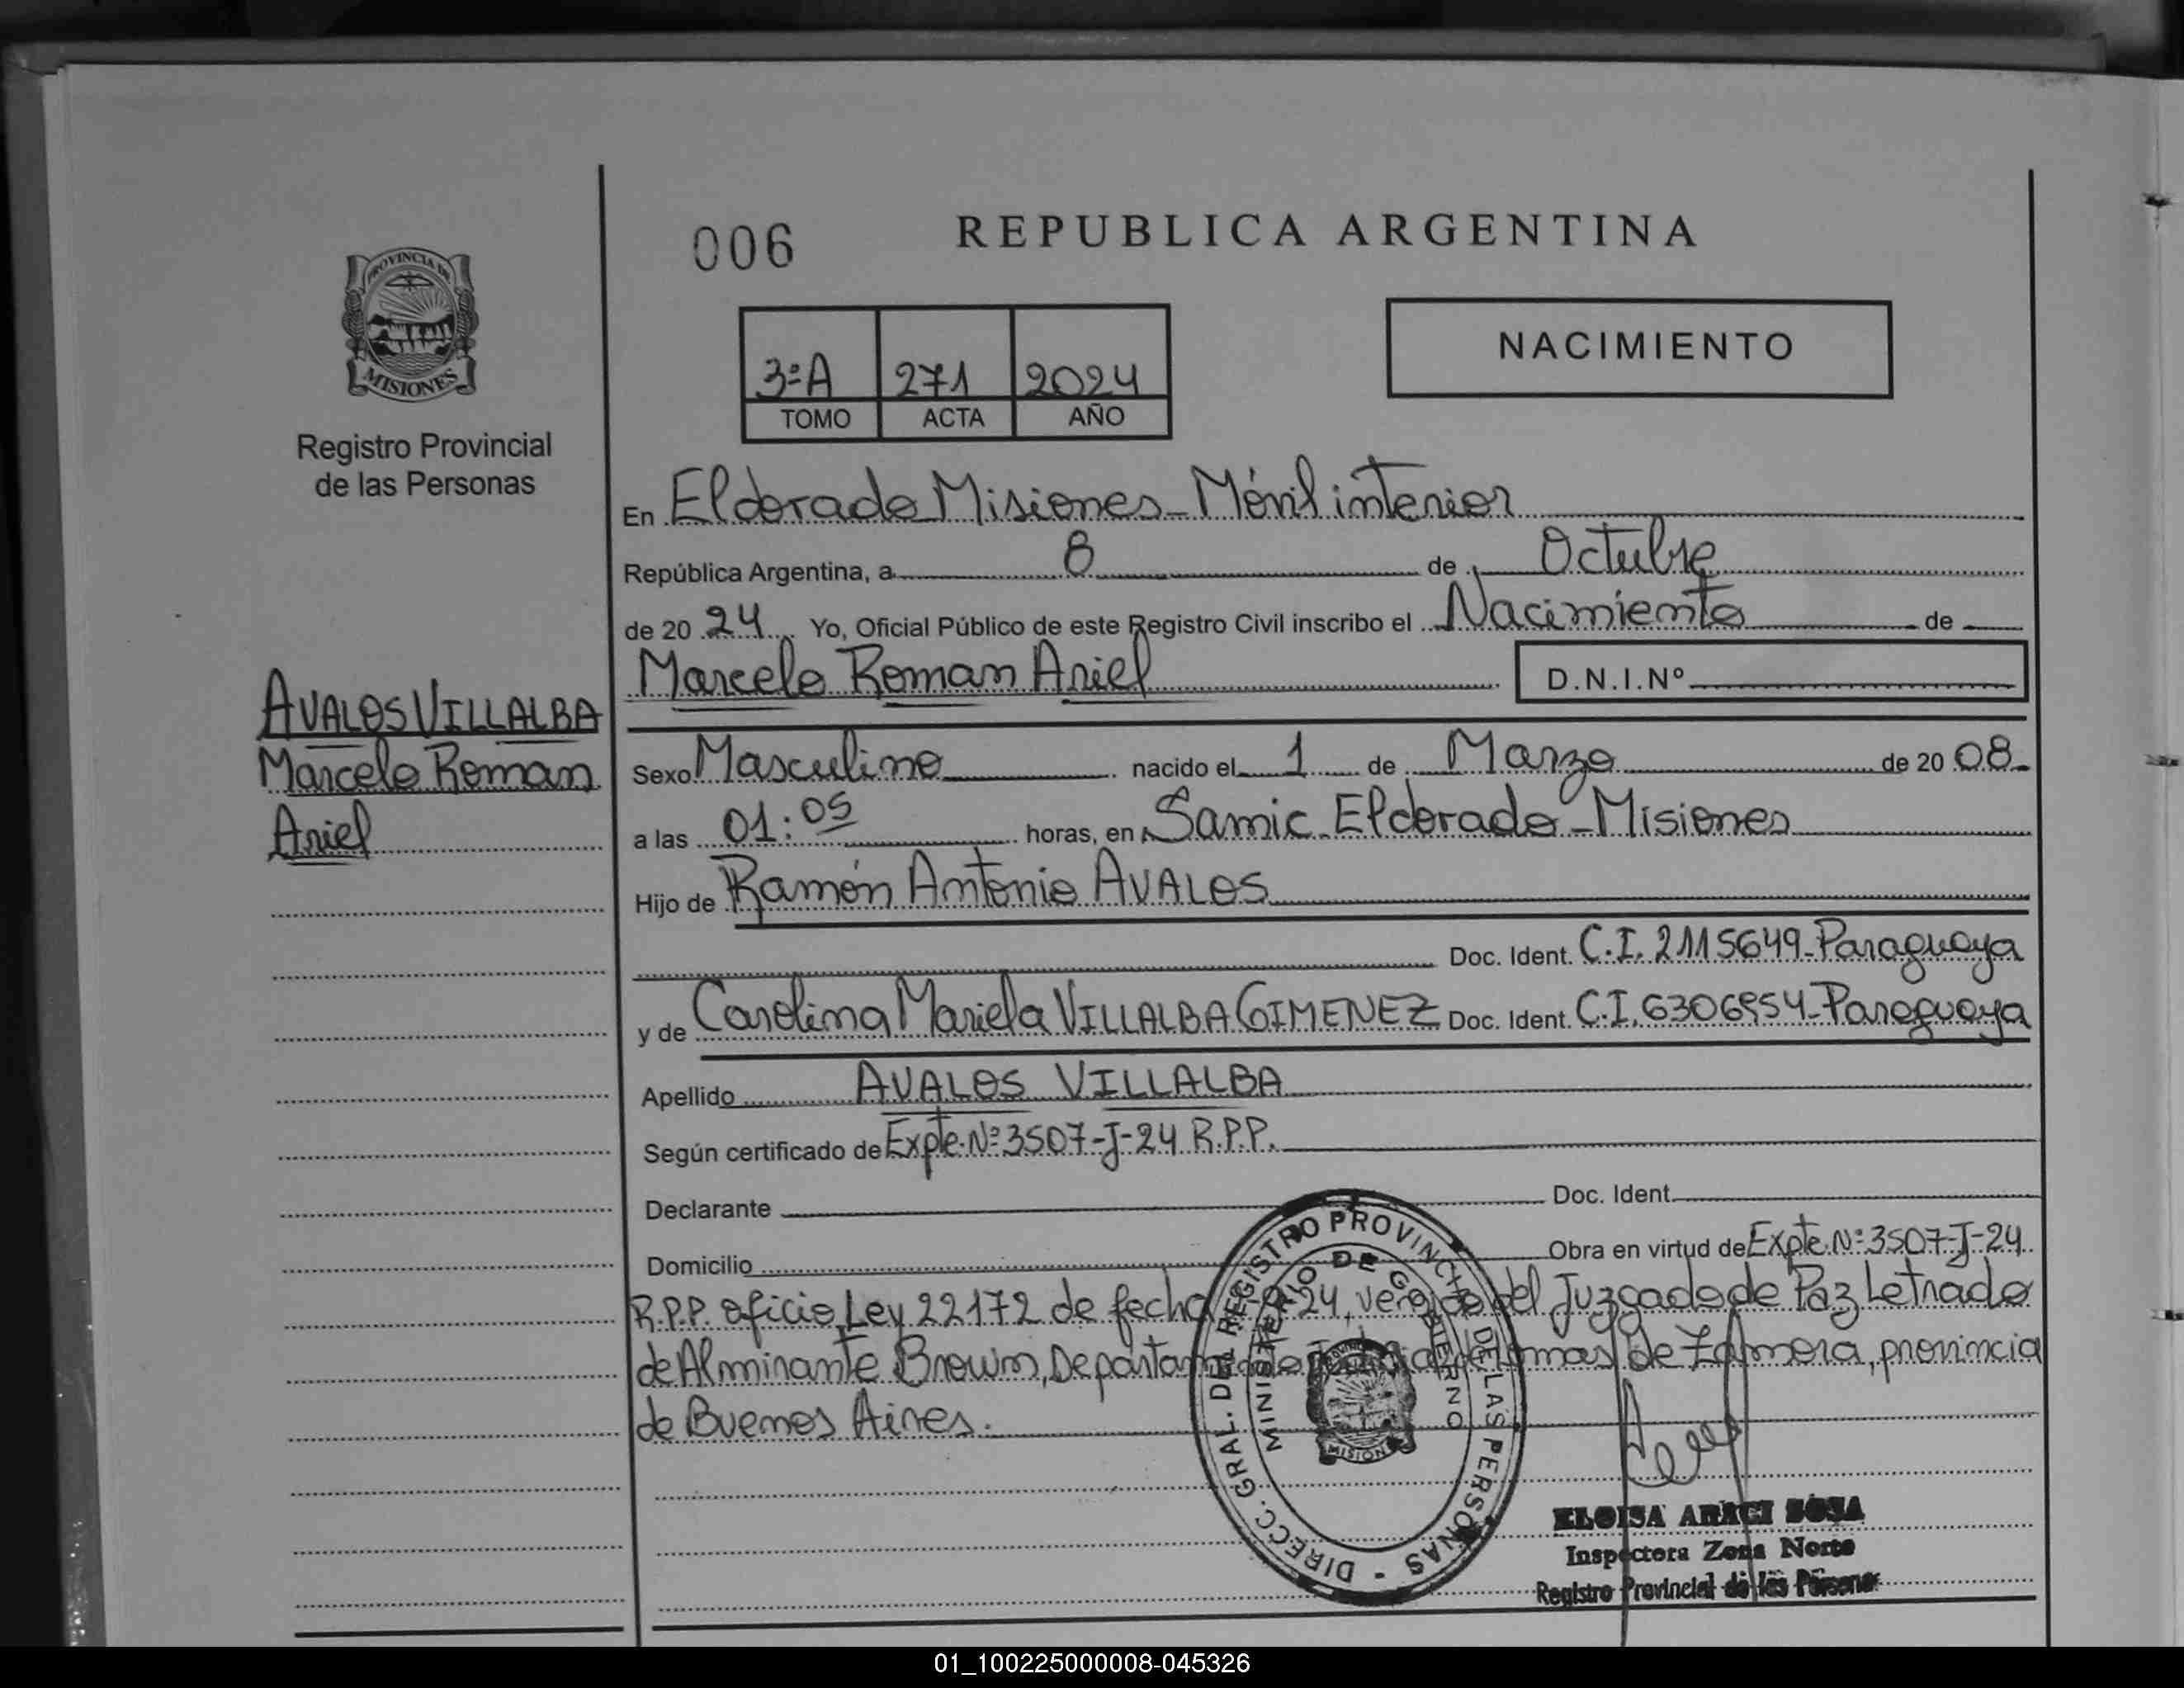 006
REPUBLICA ARGENTINA
PROVINCIA DE
MISIONES
Registro Provincial
de las Personas
3ºA 271 2024
TOMO ACTA AÑO
NACIMIENTO
En Eldorado Misiones - Móvil interior
República Argentina, a 8 de Octubre
de 20 24 Yo, Oficial Público de este Registro Civil inscribo el Nacimiento de
Marcelo Roman Ariel D.N.I.Nº
AVALOS VILLALBA
Marcelo Roman
Ariel
Sexo Masculino nacido el 1 de Marzo de 20 08
a las 01:05 horas, en Samic Eldorado - Misiones
Hijo de Ramón Antonio AVALOS
Doc. Ident. C.I. 2115649 - Paraguaya
y de Carolina Mariela VILLALBA GIMENEZ Doc. Ident. C.I. Paraguaya
Apellido AVALOS VILLALBA
Según certificado de Expte. Nº 3507-J-24 R.P.P.
Declarante Doc. Ident.
Domicilio Obra en virtud de Expte. Nº 3507-J-24
R.P.P. oficio Ley 22172 de fecha 24, del Juzgado de Paz Letrado
de Alminante Brown, de provincia
de Buenos Aires.
DIRECC. GRAL. DEL REGISTRO PROVINCIAL DE LAS PERSONAS -
MINISTERIO DE GOBIERNO
ELOISA ARACI SOSA
Inspectora Zona Norte
Registro Provincial de las Personas
01_100225000008-045326